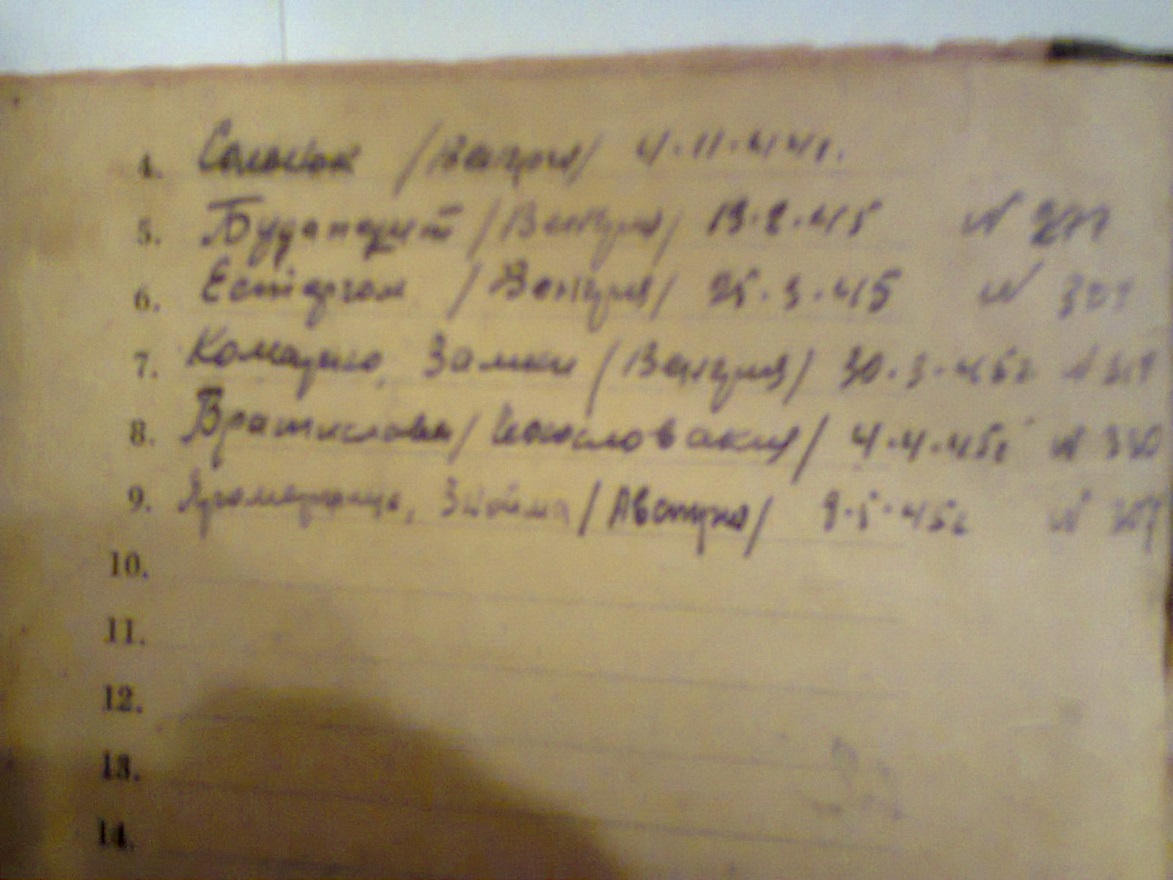 4. Солнок /Венгрия/ 4.11.44г.
5. Будапешт /Венгрия/ 13.2.45 N
6. Естергом /Венгрия/ 25.3.45 N
7. Комарно, Замки /Венгрия/ 30.3.45г N
8. Братислава /Чехословакия/ 4.4.45г N 330
9. Яромержице, Знойма /Австрия/ 8.5.45г N
10.
11.
12.
13.
14.